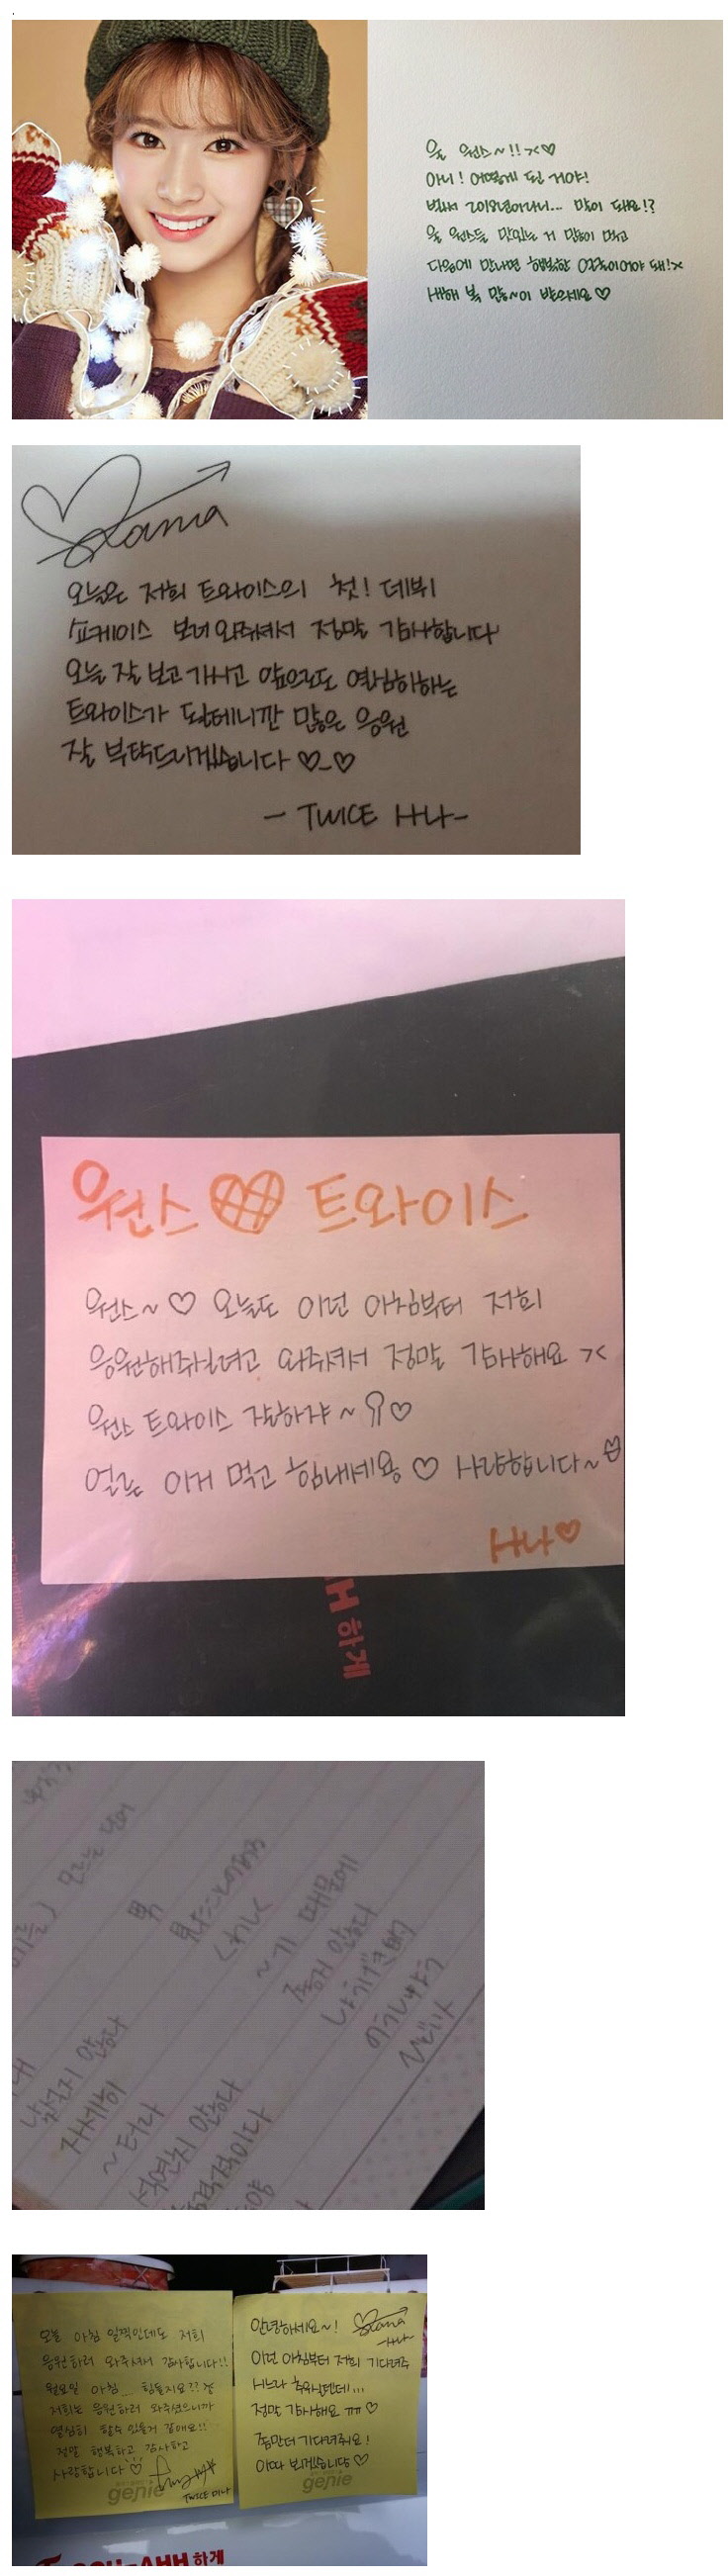 .
울 원스~!! ><♡
아니! 어떻게 된 거야!
벌써 2018년이라니... 말이 돼요!?
울 원스들 맛있는 거 많이 먹고
다음에 만나면 행복한 이어야 돼!><
새해 복 많~이 받으세요♡
Sana
오늘은 저희 트와이스의 첫! 데뷔
쇼케이스 보러 와주셔서 정말 감사합니다
오늘 잘 보고 가시고 앞으로도 열심히하는
트와이스가 될테니깐 많은 응원
잘 부탁드리겠습니다 ♡_♡
- TWICE 사나-
원스♡트와이스
원스~♡ 오늘도 이런 아침부터 저희
응원해주실려고 와주셔서 정말 감사해요 ><
원스 트와이스 잘하쟈~♡
얼른 이거 먹고 힘내세용♡ 사랑합니다~
사나♡
하게
모르는 단어
男
くわしく
~기 때문에
좋지 않다
しょうげき的
のうしゅよう
남기지 않다
자세히
~터라
석연치 않다
오늘 아침 일찍인데도 저희
응원하러 와주셔서 감사합니다!!
월요일 아침... 힘들지요??
저희는 응원하러 와주셨으니까
열심히 할수 있을거 같애요!!
정말 행복하고 감사하고
사랑합니다♡
TWICE 미나
genie
안녕하세요~! Sana
-사나-
이런 아침부터 저희 기다려주
시느라 추우실텐데...
정말 감사해요 ㅠㅠ♡
쫌만더 기다려줘요!
이따 뵈겠습니당♡
genie
OOH-AHH하게